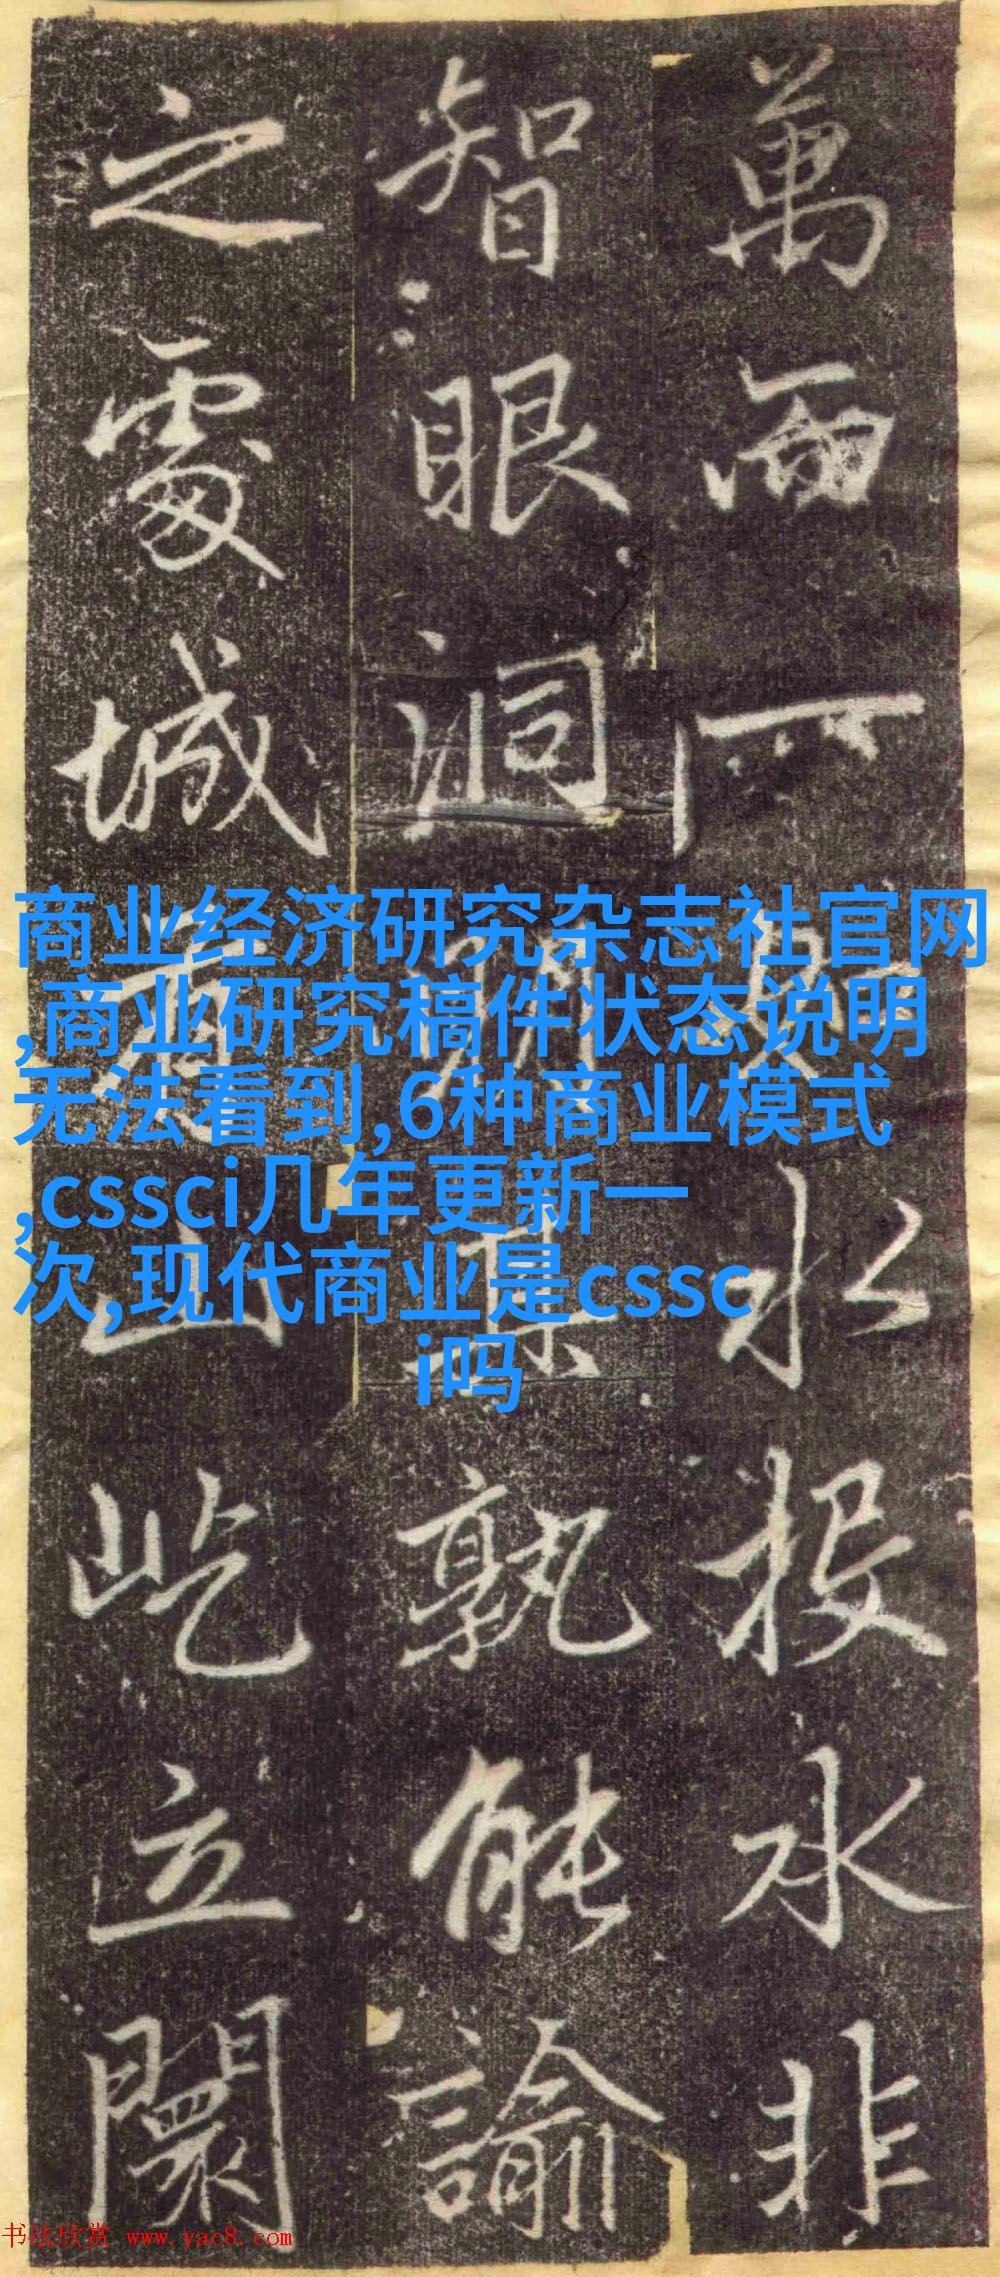 萬水投水非
智眼洞明其孰能諭
之處城山屹立闤
商业经济研究杂志社官网
,商业研究稿件状态说明
无法看到,6种商业模式
,cssci几年更新一
次,现代商业是cssc
i吗
书法欣赏 www.yac8.com